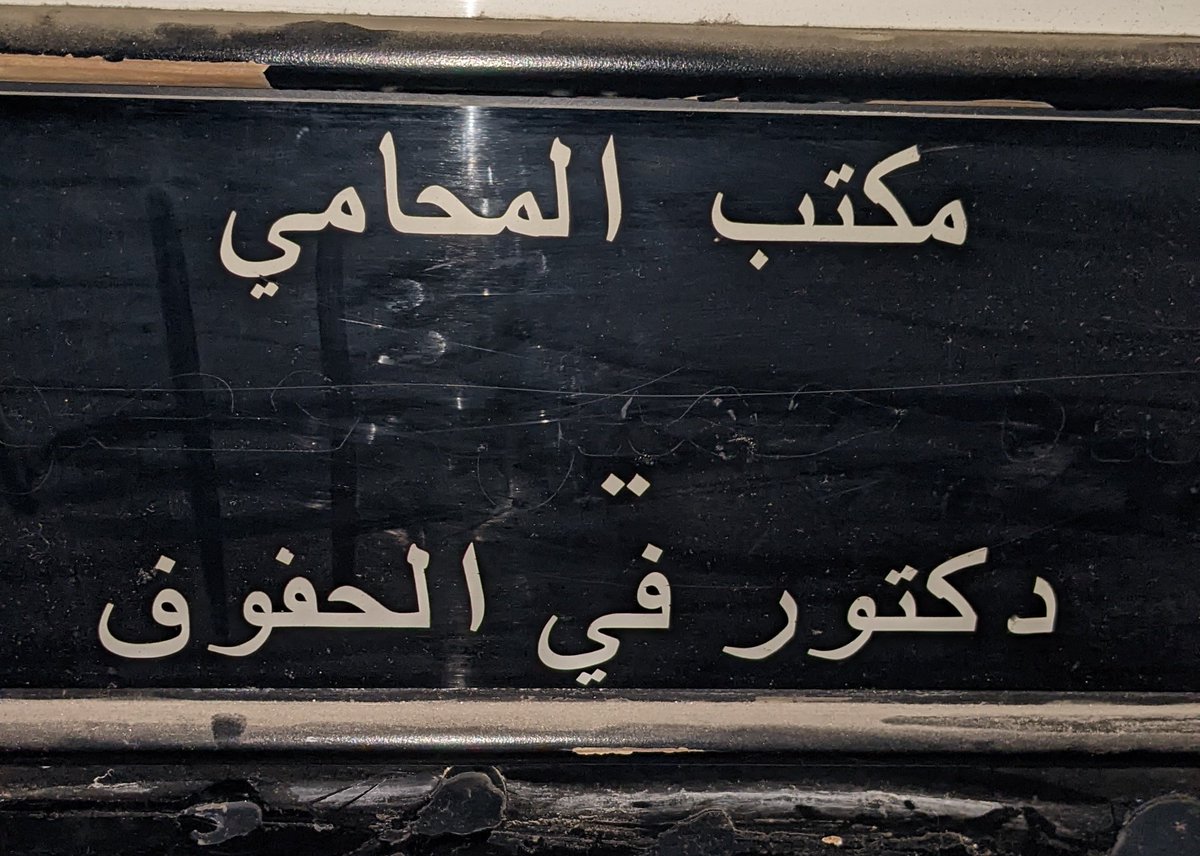 مكتب المحامي
دكتور في الحفوق